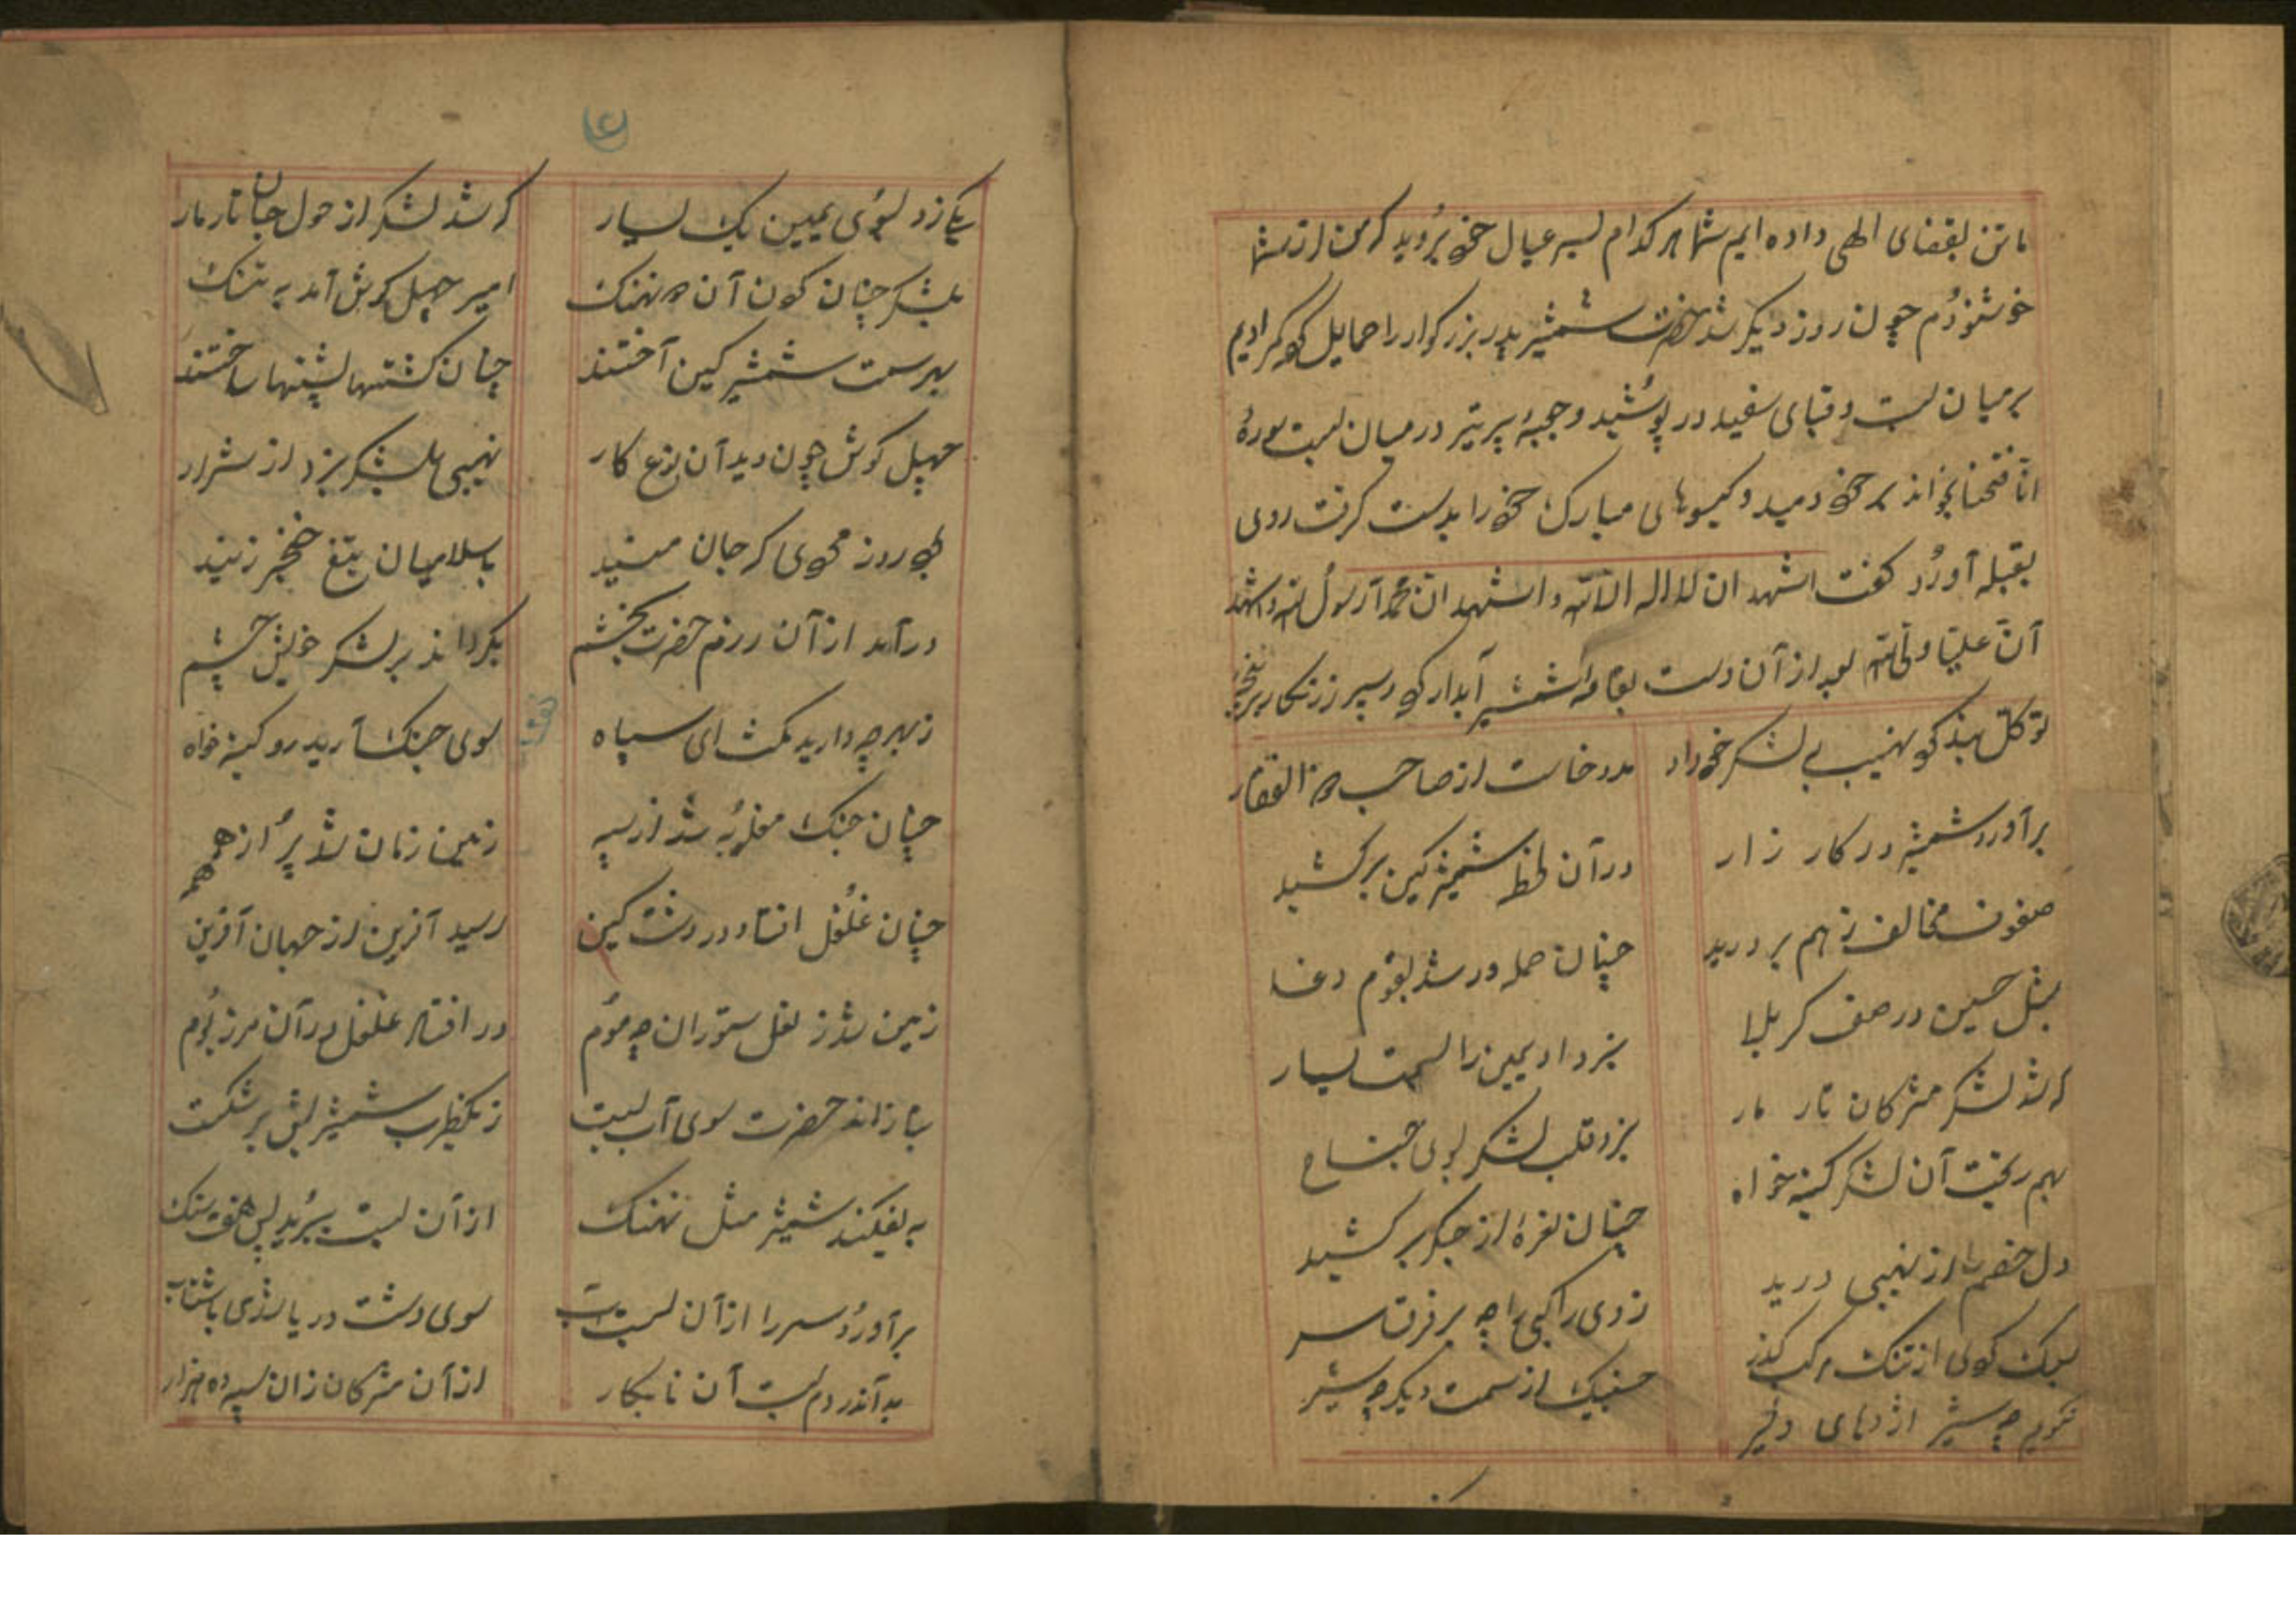 ما تن بقضای الهی داده ایم شما هر کدام بسر عیال خود بروید که من از شما
خوشنودم چون روز دیگر شد حضرت شمشیر پدر بزرکوار را حمایل کرد
بر میان بست و قبای سفید در پوشید و جعبهٔ پر تیر در میان بست سورهٔ
انا فتحنا بخواند بر خود دمید و کیسوهای مبارک خود را بدست کرفت روی
بقبله آورد کفت اشهد ان لا اله الا الله و اشهد ان محمدا رسول الله و اشهد
ان علیا ولی الله بعد از آن دست بقایمه شمشیر آبدار کرد و سپر زرنکار بر
توکل نمود کو نهیب بی لشکر خود داد
مدد خاست از صاحب ذو الفقار
برآورد شمشیر در کار زار
در آن لحظه شمشیر کین بر کشید
صفوف مخالف ز هم بر درید
چنان حمله ور شد بقوم دغا
بمثل حسین در صف کربلا
بزد او یمین را بسمت یسار
که شد لشکر مشرکان تار مار
بزد قلب لشکر بروی جناح
بهم ریخت آن لشکر کینه خواه
چنان نعرهٔ از جکر بر کشید
دل خصم را از نهیبی درید
زدی راکبی را چه بر فرق سر
سبک کوی از تنک مرکب کذر
جنیک از سمت دیکر چه شیر
نکویم چه شیر اژدهای دلیر
۷
یکی زد بسوی یمین یک یسار
که شد لشکر از حول جان تار مار
بلشکر چنان کون آن دو نهنک
امیر چهل کوش آمد به تنک
بهر سمت شمشیر کین آختند
چنان کشتها پشتها ساختند
چهل کوش چون دید آن نوع کار
نهیبی بلشکر بزد از شرار
که روز محوی که جان میبند
باسلامیان تیغ خنجر زنید
در آمد از آن رزم حضرت بخشم
بکرداند بر لشکر خویش چشم
ز بهر چه دارید مکث ای سپاه
سوی جنک آرید رو کینه خواه
چنان جنک مغلوبه شد از سپه
زمین زمان شد پر از همهمه
چنان غلغل افتاد در دشت کین
رسید آفرین از جهان آفرین
زمین شد ز نعل ستوران چه موم
در افتاد غلغل در آن مرز بوم
بتازاند حضرت سوی آب بست
ز یکضرب شمشیر پلش بر شکست
به بفکند شمشیر مثل نهنک
از آن بست ببرید پس هفت سنک
برآورد سر را از آن بست آب
سوی دشت دریا شدی باشتاب
بد آندر دم بست آن نابکار
از آن مشرکان زان سپه ده هزار